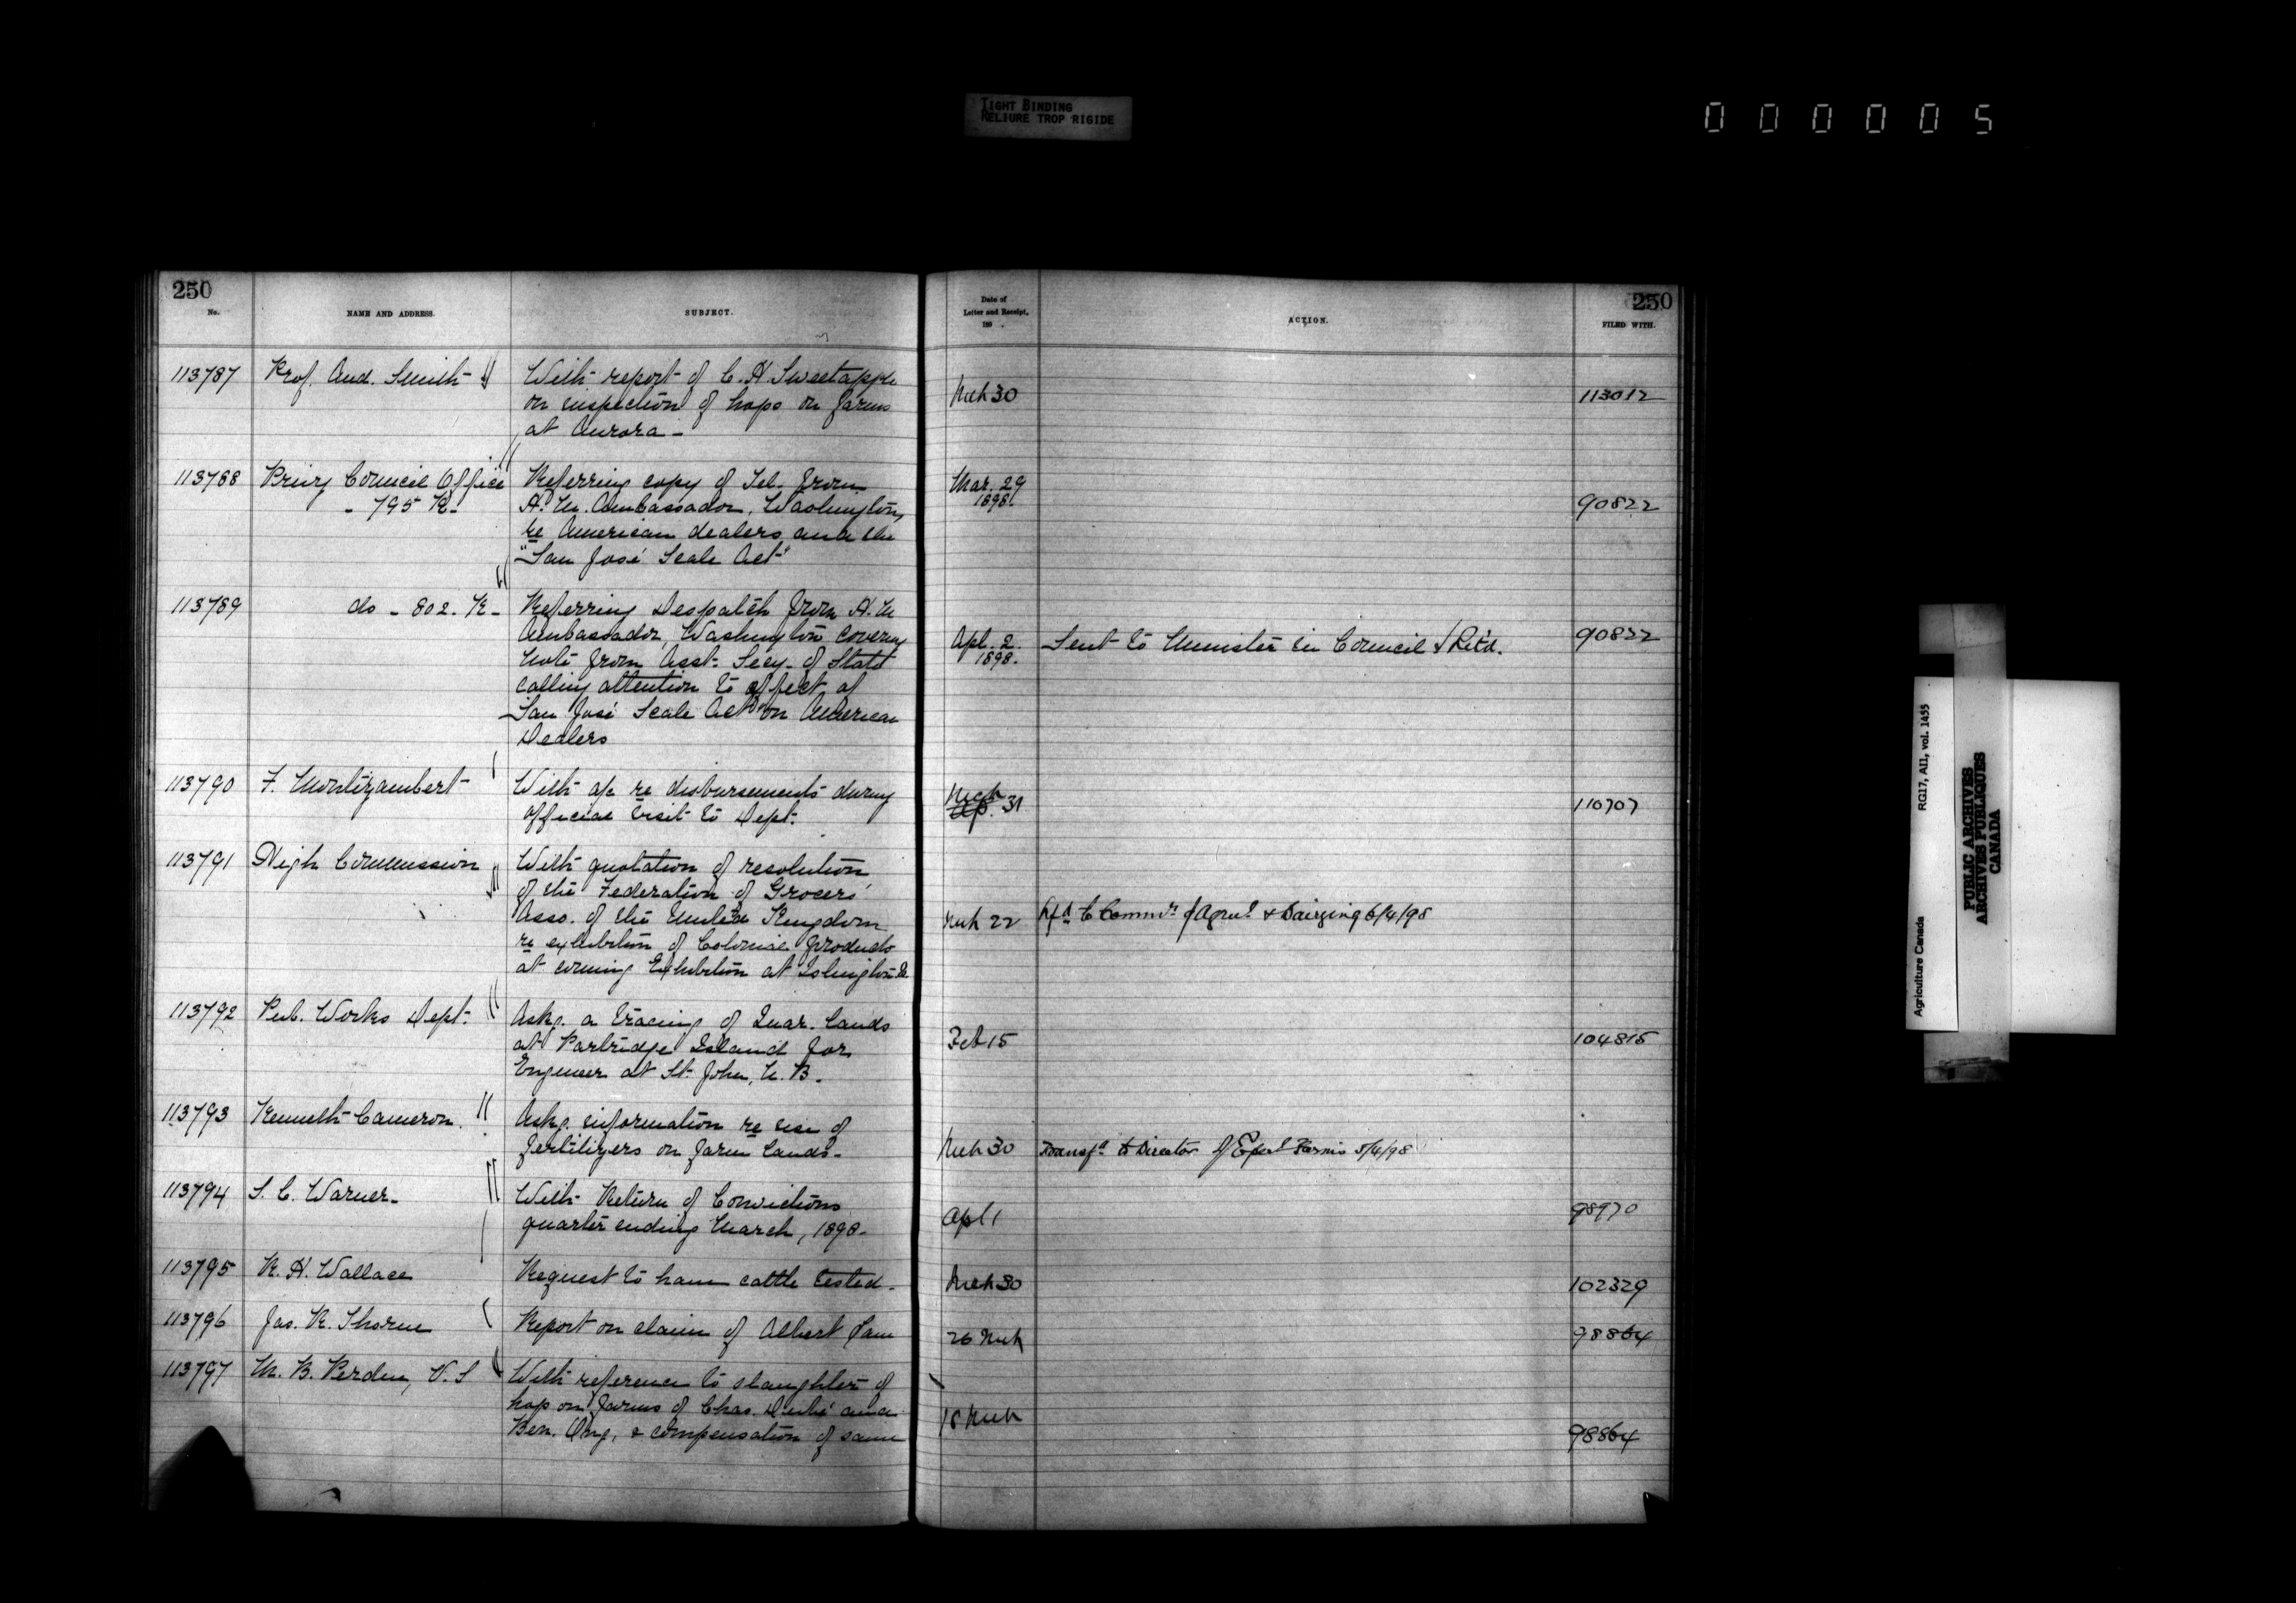 TIGHT BINDING
RELIURE TROP RIGIDE
0 0 0 0 0 5
250
No.
NAME AND ADDRESS.
SUBJECT.
Date of
Letter and Receipt,
189 .
ACTION.
250
FILED WITH.
113787 Prof. And. Smith With report of C. H. Sweetapple
on inspection of hogs on farms
at Aurora -
Mch 30
113012
113788 Privy Council Office Referring copy of Tel. from
- 795 K - H. M. Ambassador, Washington,
re American dealers and the
"San José Scale Act"
Mar. 29
1898.
90822
113789 do - 802. K - Referring Despatch from H. M
Ambassador, Washington covering
note from Asst. Secy. of State
calling attention to effect of
San José Scale Act on American
Dealers
Apl. 2.
1898.
Sent to Minister in Council & Retd.
90822
113790 F. Montizambert With a/c re disbursements during
official visit to Dept.
Mch
Ap. 31
110707
113791 High Commission With quotation of resolution
of the Federation of Grocers'
Asso. of the United Kingdom
re exhibition of Colonial products
at coming Exhibition at Islington
Mch 22
Rfd to Commr of Agricl & Dairying 6/4/98
113792 Pub. Works Dept. Askg. a tracing of Quar. lands
at Partridge Island for
Engineer at St. John, N. B.
Feb 15
104815
113793 Kenneth Cameron. Askg. information re use of
fertilizers on farm lands -
Mch 30
Transfd to Director of Exper Farms 5/4/98
113794 S. C. Warner - With Return of Convictions
quarter ending March, 1898 -
Apl 1
98970
113795 R. H. Wallace Request to have cattle tested -
Mch 30
102329
113796 Jas. R. Thorne Report on claim of Albert
26 Mch
98864
113797 M. B. Perdue, V. S With reference to slaughter of
hogs on farms of Chas. Dubé and
Ben. & compensation of same
18 Mch
98864
Agriculture Canada
RG17, AII, vol. 1455
PUBLIC ARCHIVES
ARCHIVES PUBLIQUES
CANADA